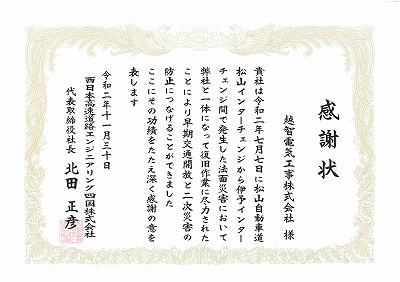 感謝状
越智電気工事株式会社 様
貴社は令和二年七月七日に松山自動車道
松山インターチェンジから伊予インター
チェンジ間で発生した法面災害において
弊社と一体になって復旧作業に尽力された
ことにより早期交通開放と二次災害の
防止につなげることができました
ここにその功績をたたえ深く感謝の意を
表します
令和二年十一月三十日
西日本高速道路エンジニアリング四国株式会社
代表取締役社長 北田 正彦